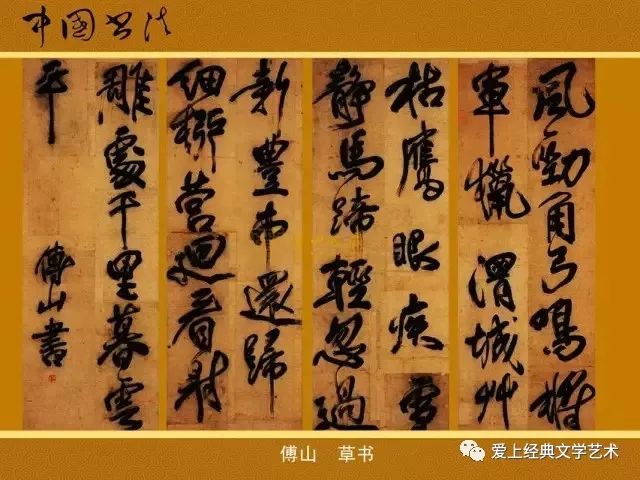 中国书法
風勁角弓鳴將
軍獵渭城艸
枯鷹眼疾雪
靜馬蹄輕忽過
新豐市還歸
細柳營迴看射
雕處千里暮雲
平
傅山書
傅山 草书
爱上经典文学艺术